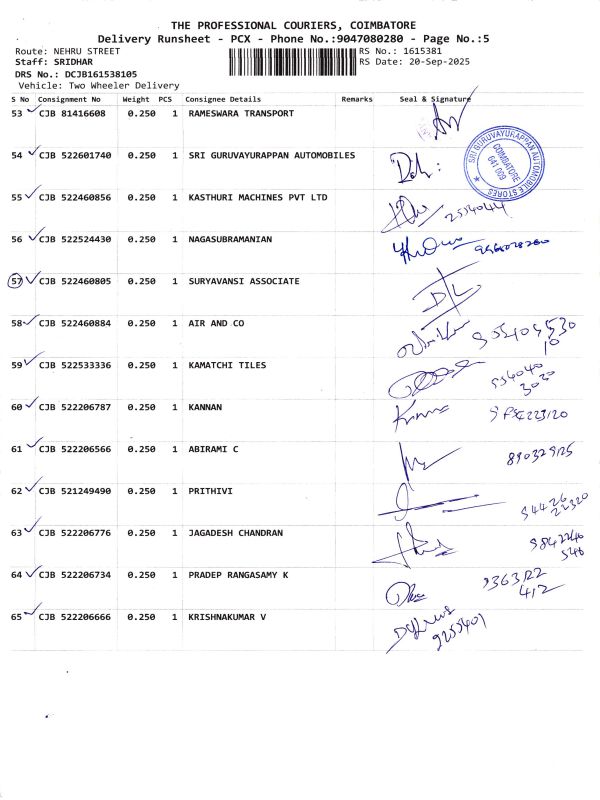 THE PROFESSIONAL COURIERS, COIMBATORE
Delivery Runsheet - PCX - Phone No.:9047080280 - Page No.:5
Route: NEHRU STREET RS No.: 1615381
Staff: SRIDHAR RS Date: 20-Sep-2025
DRS No.: DCJB161538105
Vehicle: Two Wheeler Delivery
S No Consignment No Weight PCS Consignee Details Remarks Seal & Signature
53 CJB 81416608 0.250 1 RAMESWARA TRANSPORT
54 CJB 522601740 0.250 1 SRI GURUVAYURAPPAN AUTOMOBILES
SRI GURUVAYURAPPAN AUTOMOBILE STORES
COIMBATORE
641 009
55 CJB 522460856 0.250 1 KASTHURI MACHINES PVT LTD
56 CJB 522524430 0.250 1 NAGASUBRAMANIAN
57 CJB 522460805 0.250 1 SURYAVANSI ASSOCIATE
58 CJB 522460884 0.250 1 AIR AND CO
59 CJB 522533336 0.250 1 KAMATCHI TILES
60 CJB 522206787 0.250 1 KANNAN
61 CJB 522206566 0.250 1 ABIRAMI C
62 CJB 521249490 0.250 1 PRITHIVI
63 CJB 522206776 0.250 1 JAGADESH CHANDRAN
64 CJB 522206734 0.250 1 PRADEP RANGASAMY K
65 CJB 522206666 0.250 1 KRISHNAKUMAR V